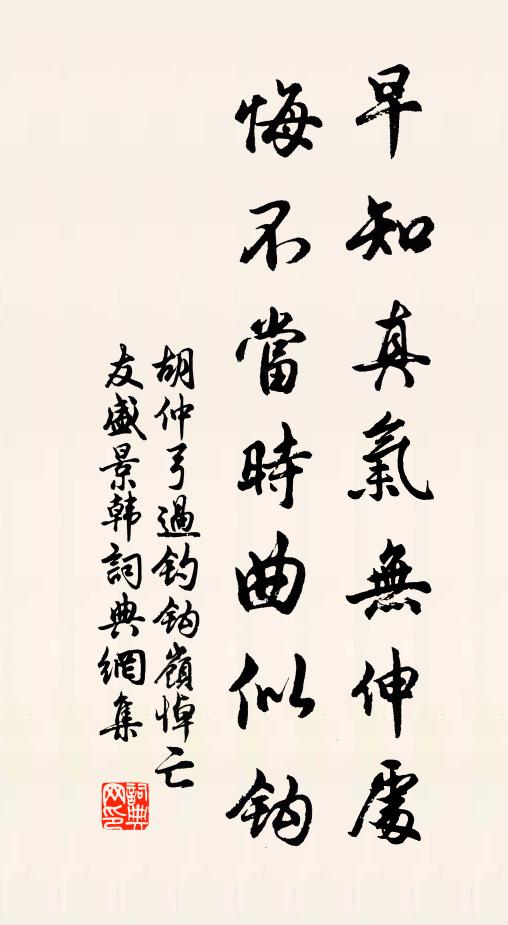 早知真氣無伸處
悔不當時曲似鈎
胡仲弓過釣鈎嶺悼亡
友盛景韩詞典網集
詞典
网印